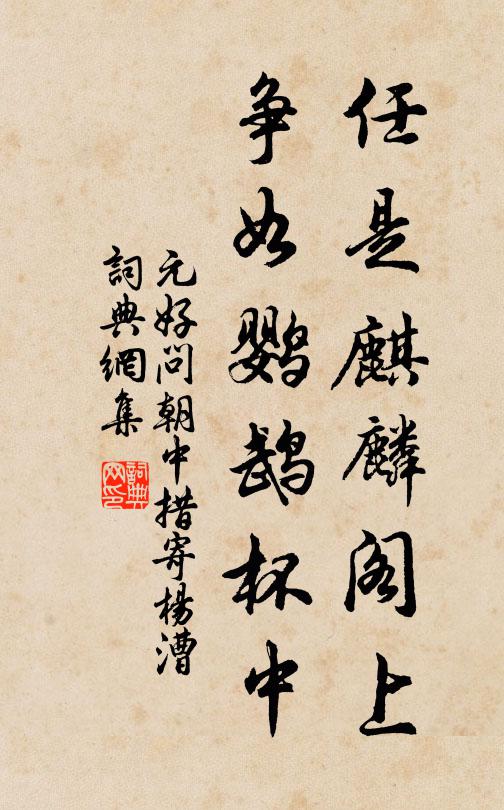 任是麒麟阁上
争如鹦鹉杯中
元好问朝中措寄楊漕
詞典網集
詞典网印